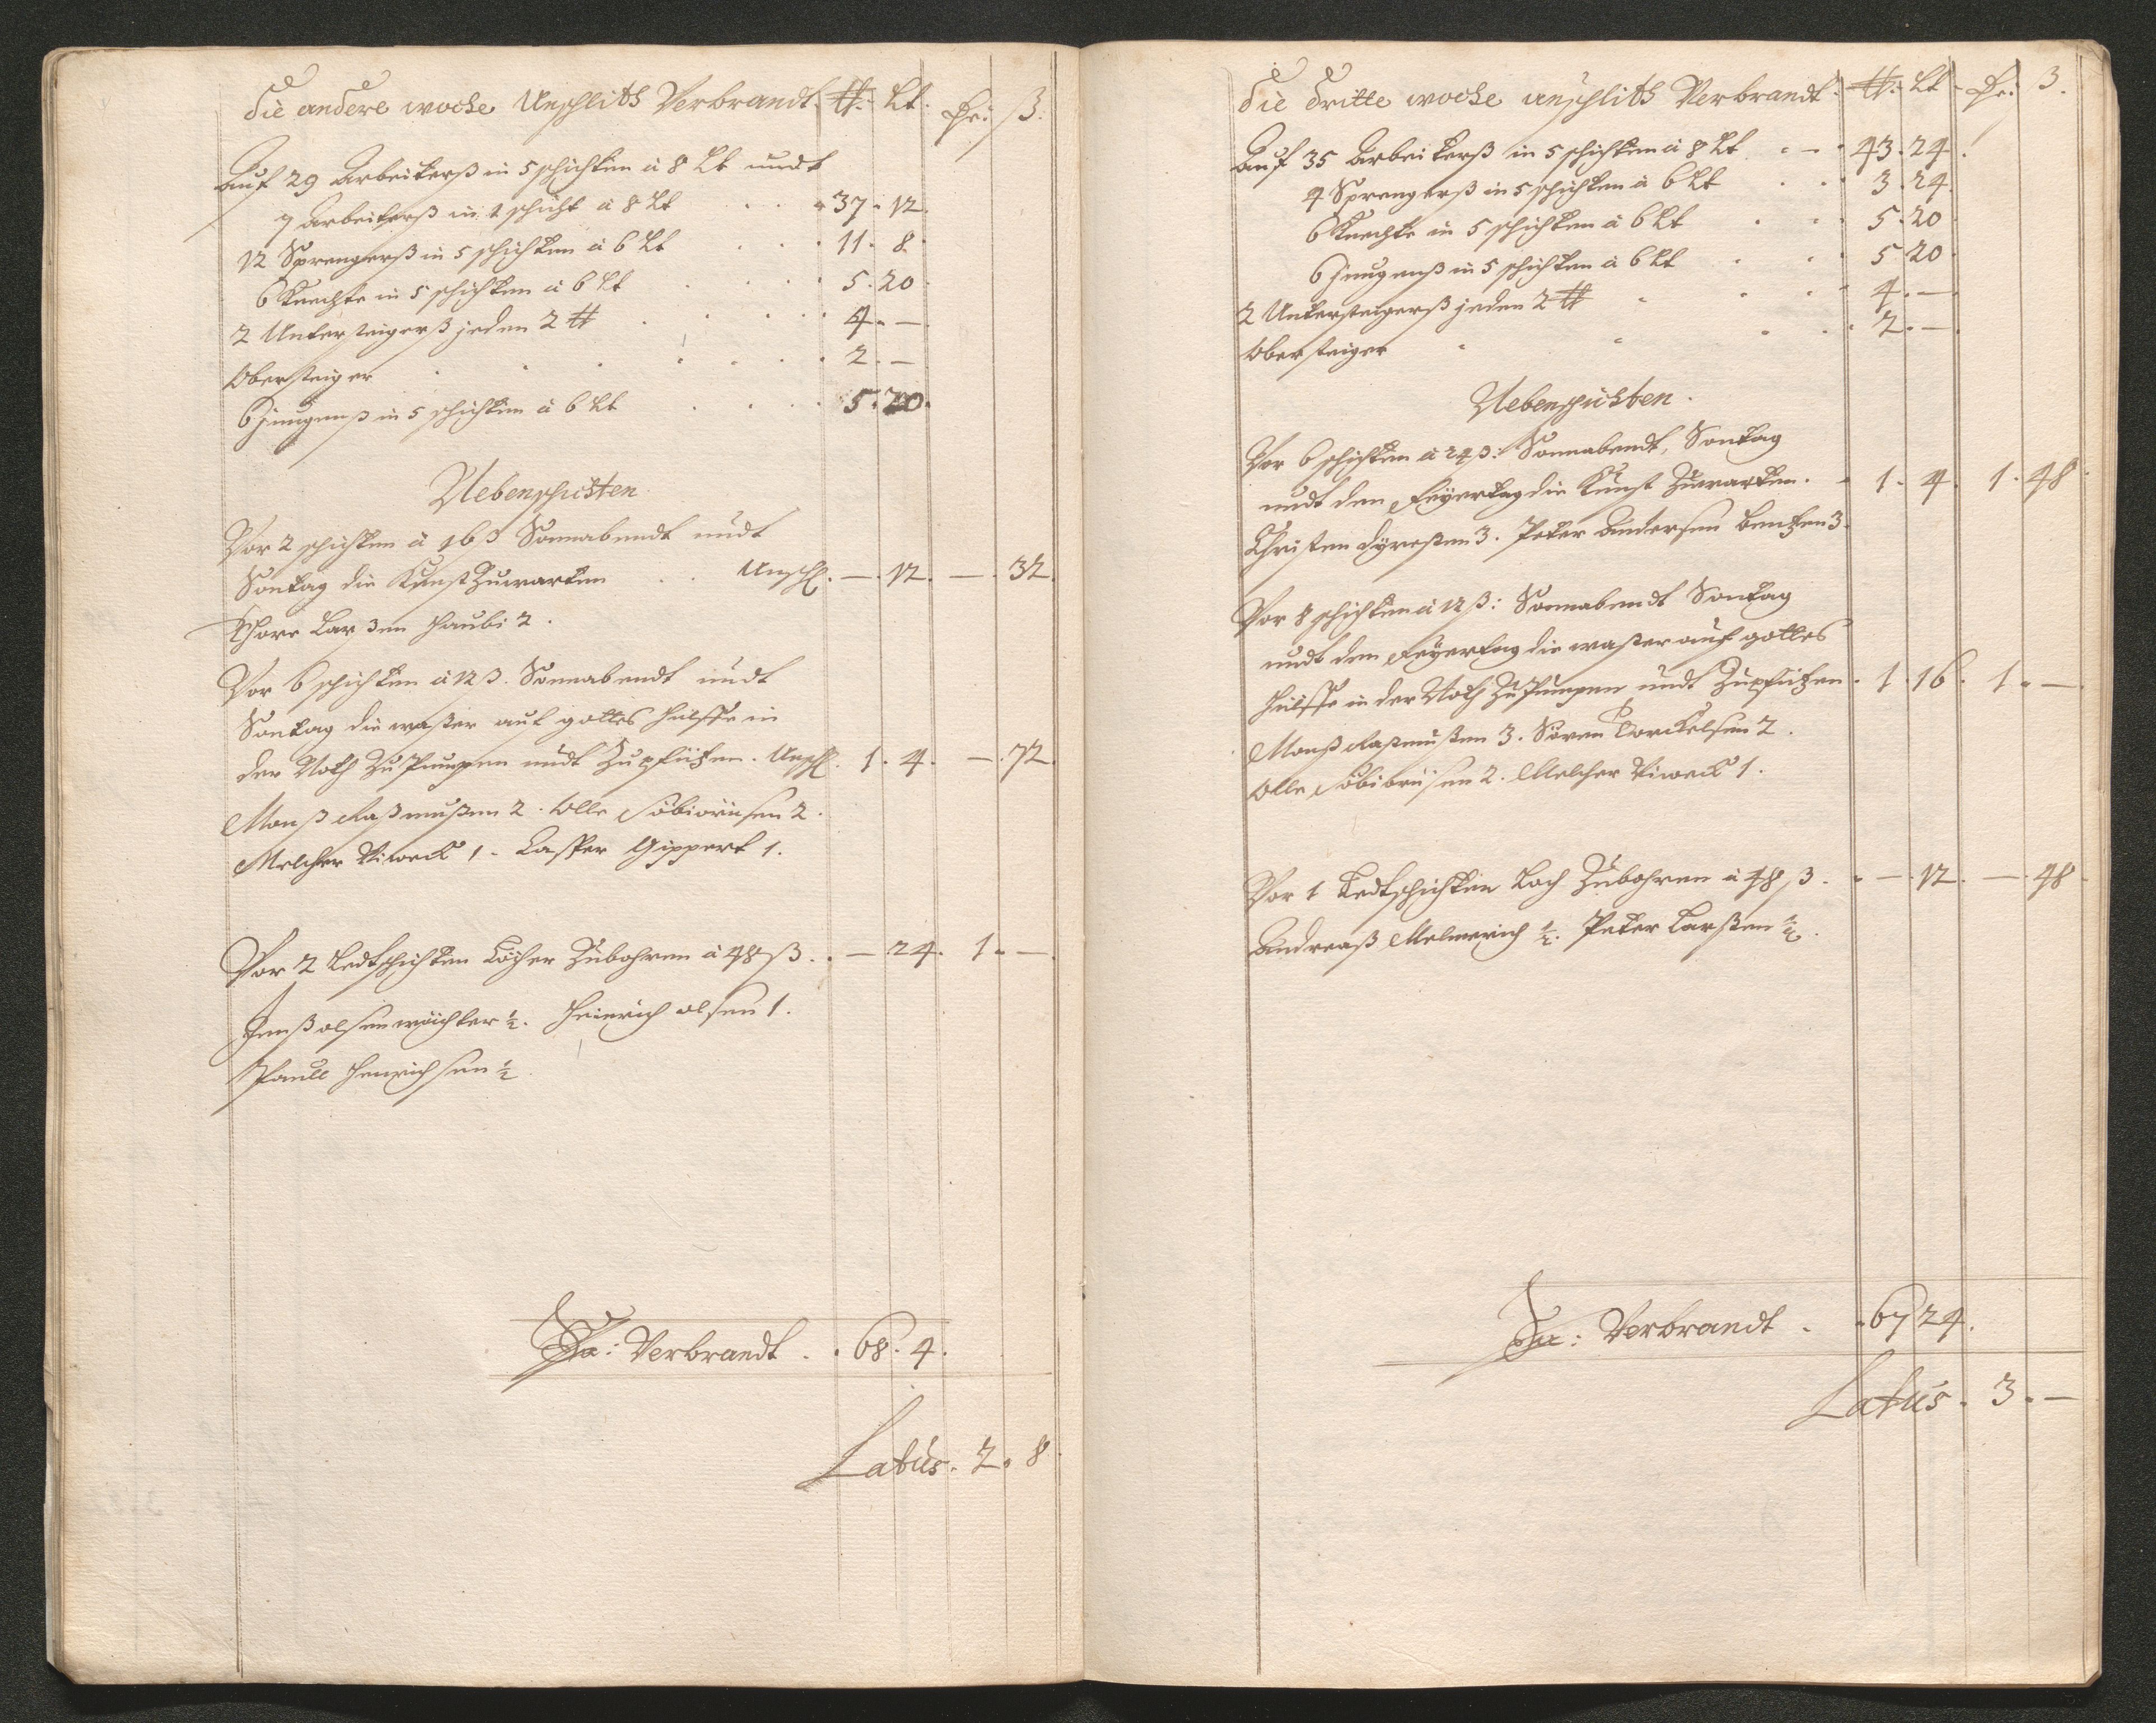 die andere woche Unschlith Verbrandt. ℔. Lt. Dr: ß:
Auf 29 Arbeiterß in 5 schichten â 8 Lt undt
7 arbeiterß in 1 schicht â 8 Lt . . . 37. 12.
12 Sprengerß in 5 schichten â 6 Lt . . . 11. 8.
6 Knechte in 5 schichten â 6 Lt . . . 5. 20
2 Untersteigerß jeden 2 ℔ . . . . 4. —
Obersteiger . . . . . 2. —
6 Jungenß in 5 schichten â 6 Lt . . . 5. 20.
Nebenschichten
Vor 2 schichten â 16 ß Sonnabendt undt
Sontag die Kunst Zuwarten . . Unschl. — . 12. — . 32.
Thore Larßen Haubi 2.
Vor 6 schichten â 12 ß. Sonnabendt undt
Sontag die waßer auf gottes Hülffe in
der Noth Zu Pumpen undt Zu pfützen. Unschl. 1. 4. — . 72.
Monß Raßmußen 2. Olle Söbiörnsen 2.
Melcher Viweck 1. Casper Gippert 1.
Vor 2 Ledtschichten Löcher Zubohren â 48 ß. . — 24. 1. —
Jenß olsen wächter ½. Heinrich olsen 1.
Paull Henrichsen ½
Sa: Verbrandt . . 68. 4.
Latus. 2. 8.
die dritte woche unschlith Verbrandt. ℔. Lt. Dr: ß.
Auf 35 Arbeiterß in 5 schichten â 8 Lt . — . 43. 24.
4 Sprengerß in 5 schichten â 6 Lt . . 3. 24.
6 Knechte in 5 schichten â 6 Lt . . 5. 20
6 Jungenß in 5 schichten â 6 Lt . . 5 20
2 Untersteigerß jeden 2 ℔ . . . 4. —
Obersteiger . . . . 2. —
Nebenschichten.
Vor 6 schichten â 24 ß: Sonnabendt, Sontag
undt den Feyertag die Kunst Zuwarten. . 1. 4. 1. 48
Christen Dyreßen 3. Peter Andersen Bentzen 3.
Vor 8 schichten â 12 ß: Sonnabendt Sontag
undt den Feyertag die waßer auf gottes
Hülffe in der Noth Zu Pumpen undt Zupfützen. 1. 16. 1. —
Monß Raßmußen 3. Sören Torckelsen 2.
Olle Söbiörnsen 2. Melcher Viweck 1.
Vor 1 Ledtschichten Loch Zubohren â 48 ß. . — . 12. — . 48
Andreaß Melmerich ½. Peter Larßen ½.
Sa: Verbrandt . . 67 24.
Latus. 3. —